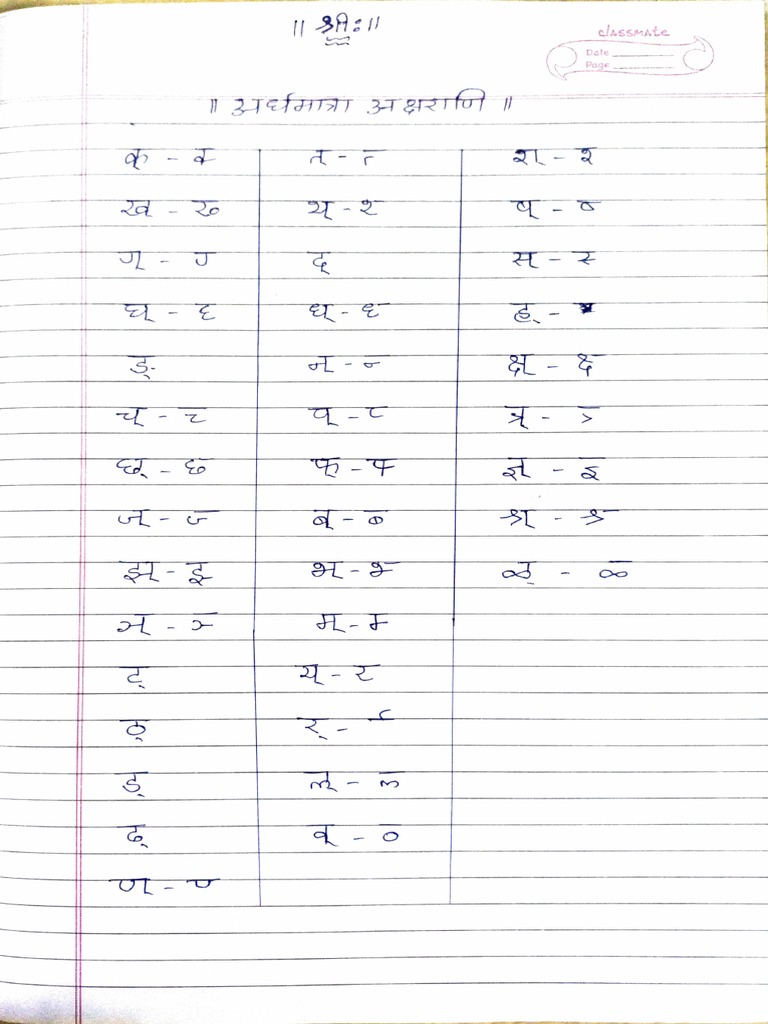 ॥ श्रीः ॥
classmate
Date
Page
॥ अर्धमात्रा अक्षराणि ॥
क् - क्‍ त् - त्‍ श् - श्‍
ख् - ख्‍ थ् - थ्‍ ष् - ष्‍
ग् - ग्‍ द् स् - स्‍
घ् - घ्‍ ध् - ध्‍ ह् -
ङ् न् - न्‍ क्ष् - क्ष्‍
च् - च्‍ प् - प्‍ त्र् - त्र्‍
छ् - छ्‍ फ् - फ्‍ ज्ञ् - ज्ञ्‍
ज् - ज्‍ ब् - ब्‍ श्र् - श्र्‍
झ् - झ्‍ भ् - भ्‍ ळ् - ळ्‍
ञ् - ञ्‍ म् - म्‍
ट् य् - य्‍
ठ् र् - र्
ड् ल् - ल्‍
ढ् व् - व्‍
ण् - ण्‍